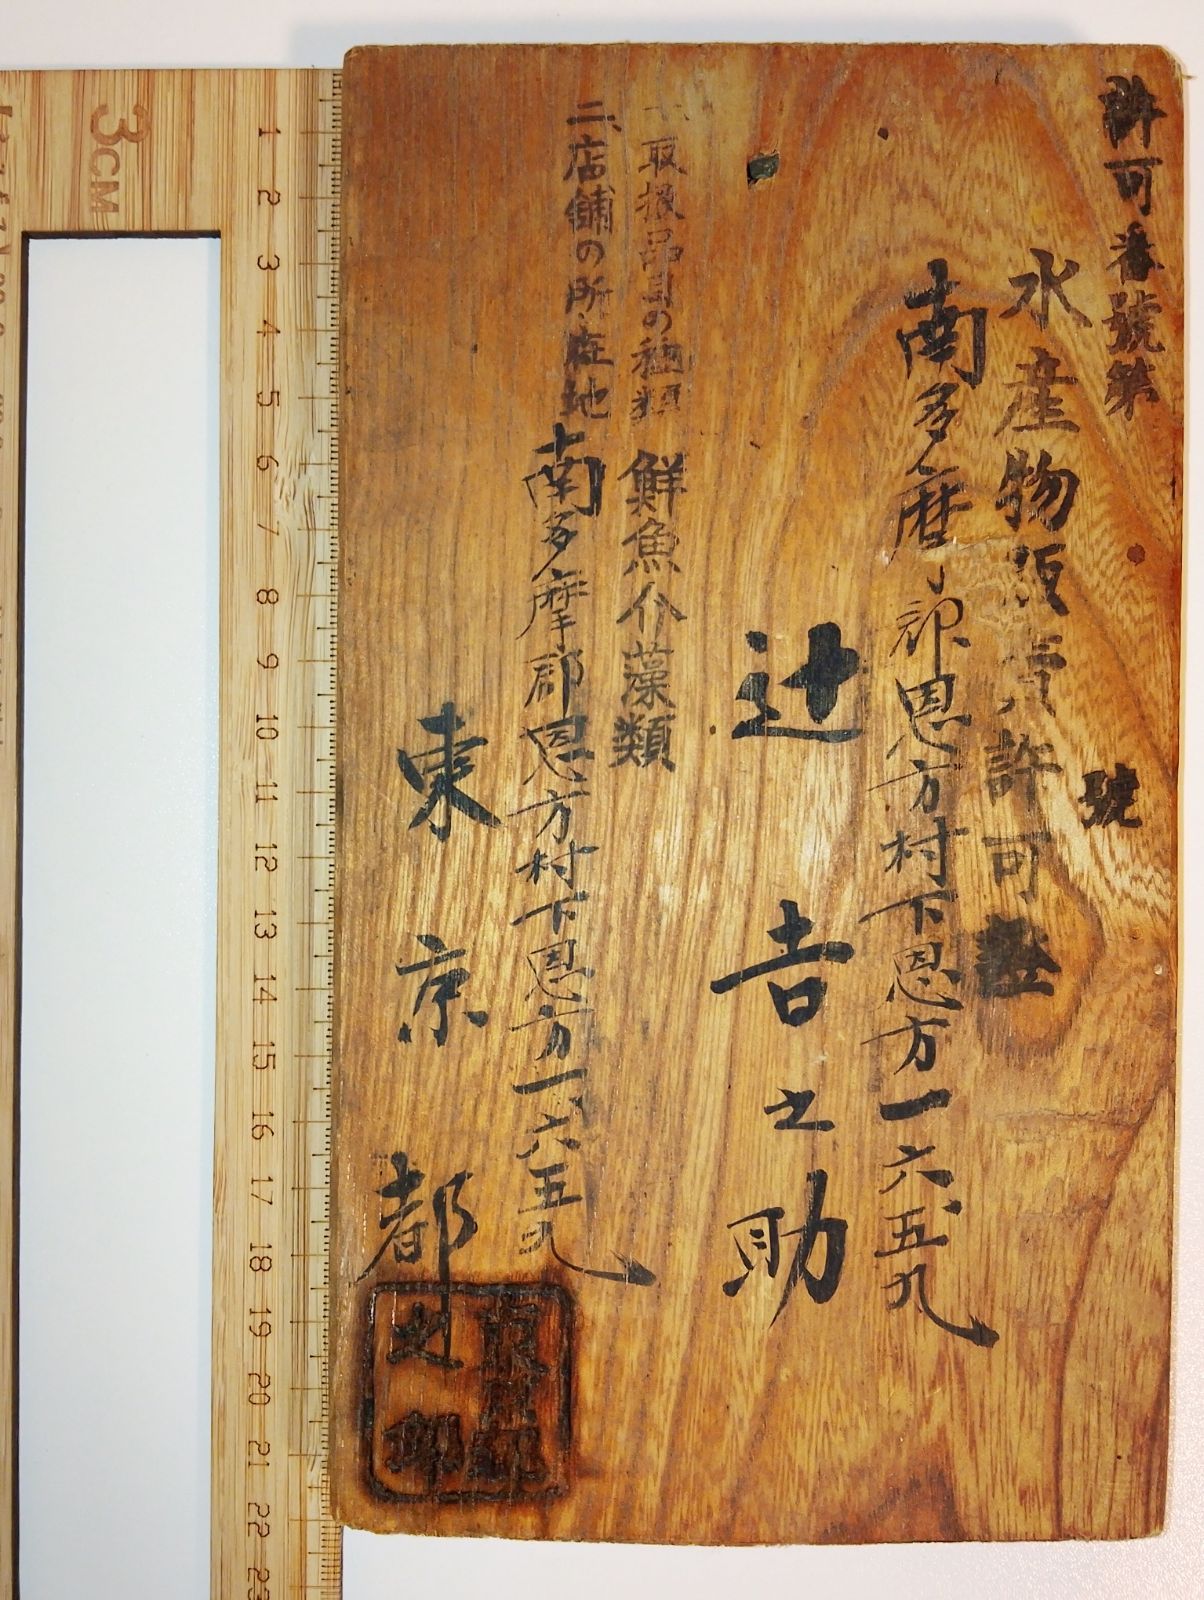 許可番號第　號
水産物販賣許可證
南多摩郡恩方村下恩方一六五九
辻吉之助
一、取扱品目の種類 鮮魚介藻類
二、店舗の所在地 南多摩郡恩方村下恩方一六五九
東京都
東京都之印
3CM
1 2 3 4 5 6 7 8 9 10 11 12 13 14 15 16 17 18 19 20 21 22 23